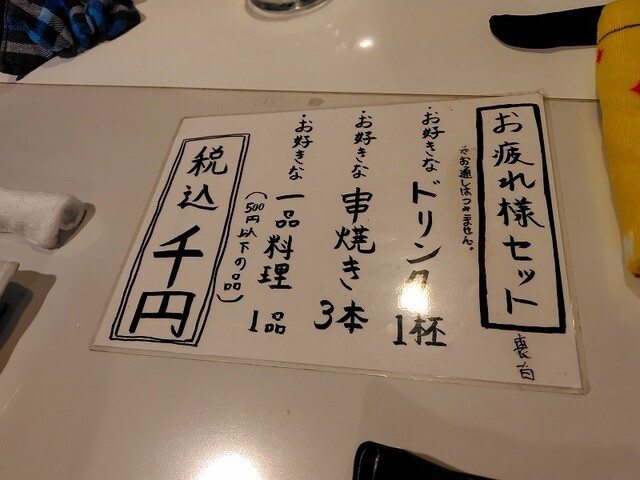 お疲れ様セット
裏白
※お通しはつきません。
・お好きなドリンク1杯
・お好きな串焼き3本
・お好きな一品料理1品
(500円以下の品)
税込千円